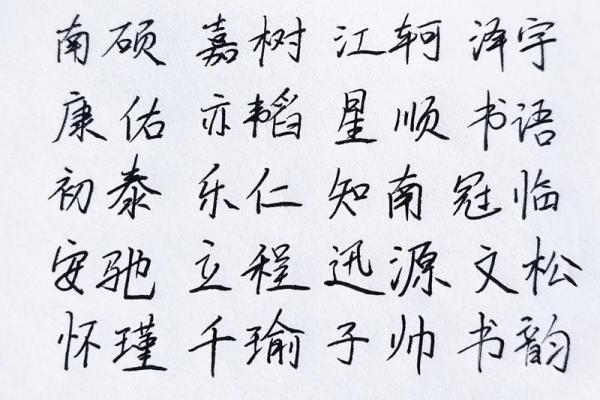 南硕 嘉树 江轲 泽宇
康佑 亦韬 星顺 书语
初泰 乐仁 知南 冠临
安驰 立程 迅源 文松
怀瑾 千瑜 子帅 书韵